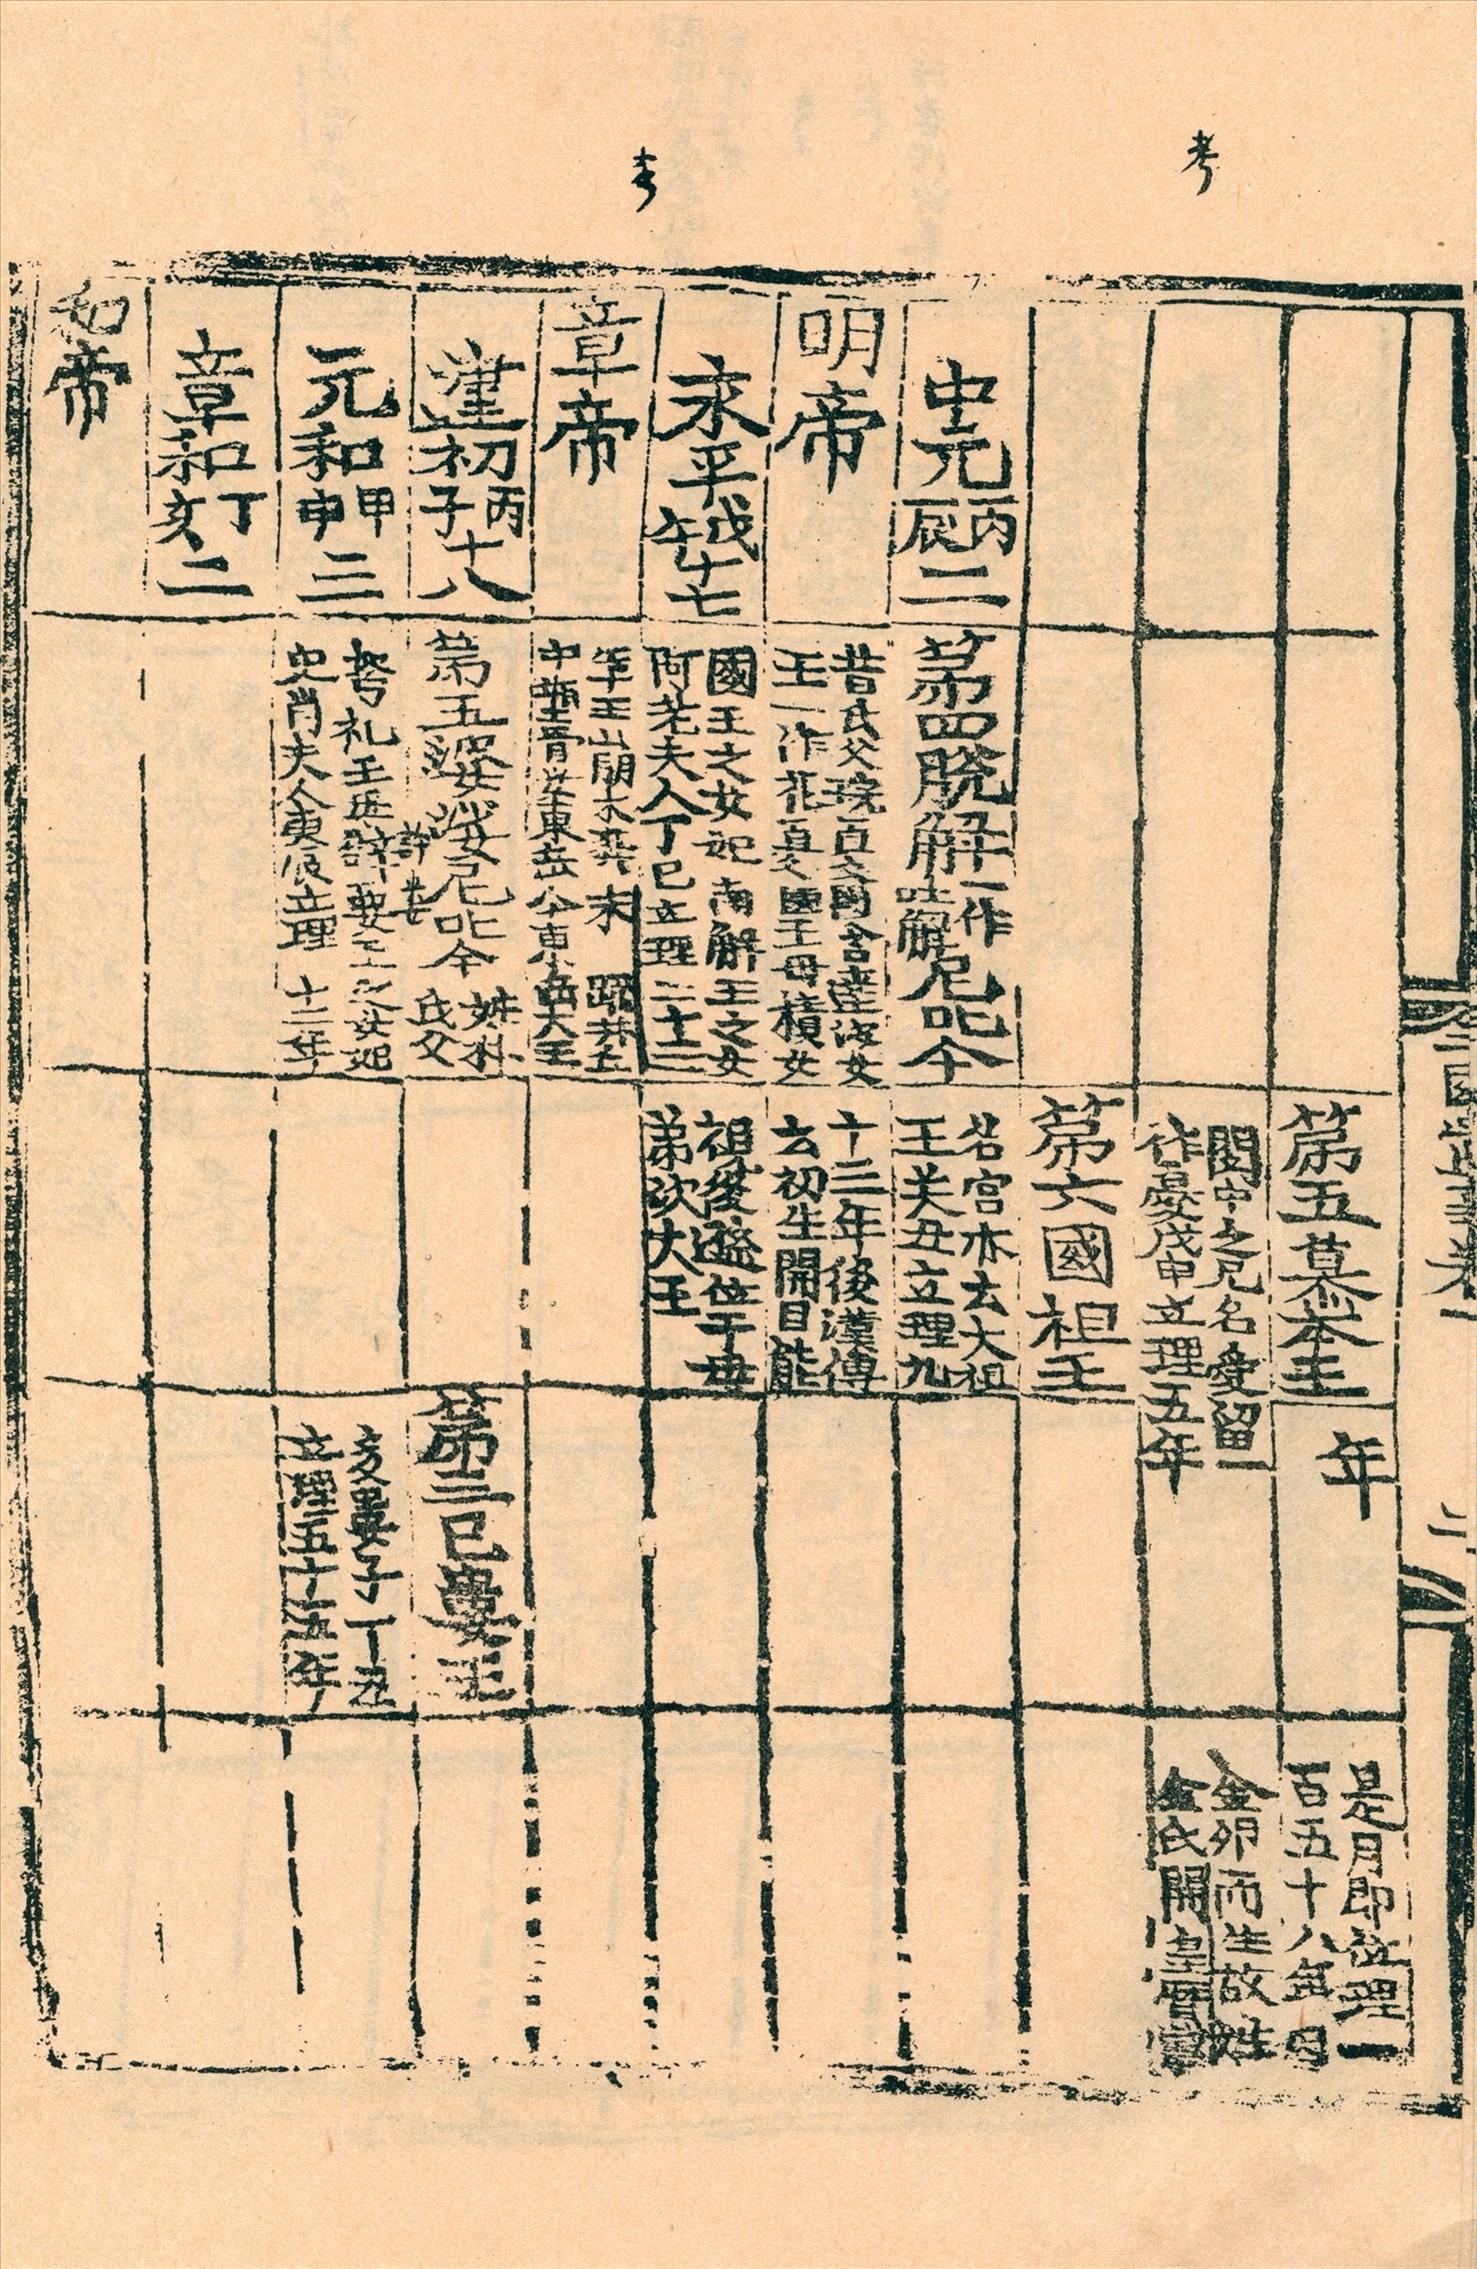 考
考
三國遺事卷一
二
中元丙辰二
明帝
永平戊午十七
章帝
建初丙子十八
元和甲申三
章和丁亥二
和帝
第四脫解一作吐解尼叱今
昔氏父琓百國含達婆女
王一作花百國王母積女
國王之女妃南解王之女
阿老夫人丁巳立理二十三
年王崩水葬未疏井丘
中塑骨安東岳今東岳大王
第五婆娑尼叱今姓朴氏父
弩礼王母辞要王之女妃
史肖夫人庚辰立理十二年
第五慕本王
閔中之兄名愛留一
作憂戊申立理五年
第六國祖王
名宮亦云大祖
王癸丑立理九
十三年後漢傳
云初生開目能
視後遜位于母
弟次大王
年
第三己婁王
多婁子丁丑
立理五十五年
是月即位理一
百五十八年因
金卵而生故姓
金氏開皇曆載